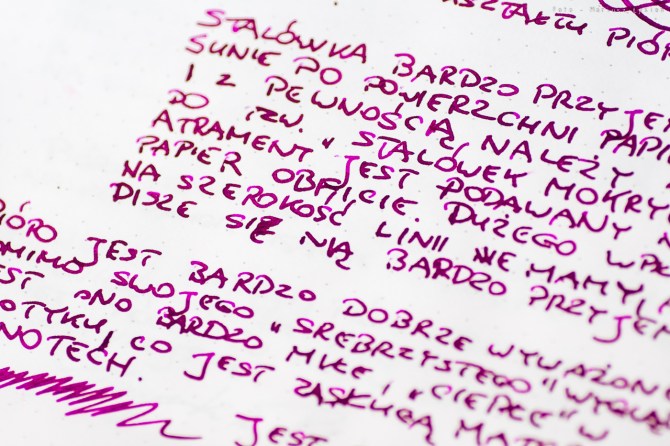 KSZTAŁTU PIÓR
STALÓWKA BARDZO PRZYJEM
SUNIE PO POWIERZCHNI PAPI
I Z PEWNOŚCIĄ NALEŻY
DO TZW. "STALÓWEK MOKRY
ATRAMENT JEST PODAWANY N
PAPIER OBFICIE. DUŻEGO WPŁ
NA SZEROKOŚĆ LINII NIE MAMY
DISZE SIĘ NIĄ BARDZO PRZYJEM
PIÓRO JEST BARDZO DOBRZE WYWAŻON
POMIMO SWOJEGO "SREBRZYSTEGO" WYGLĄ
JEST ONO BARDZO MIŁE I "CIEPŁE" W
DOTYKU, CO JEST ZASŁUGĄ MAT
NOTECH.
JEST